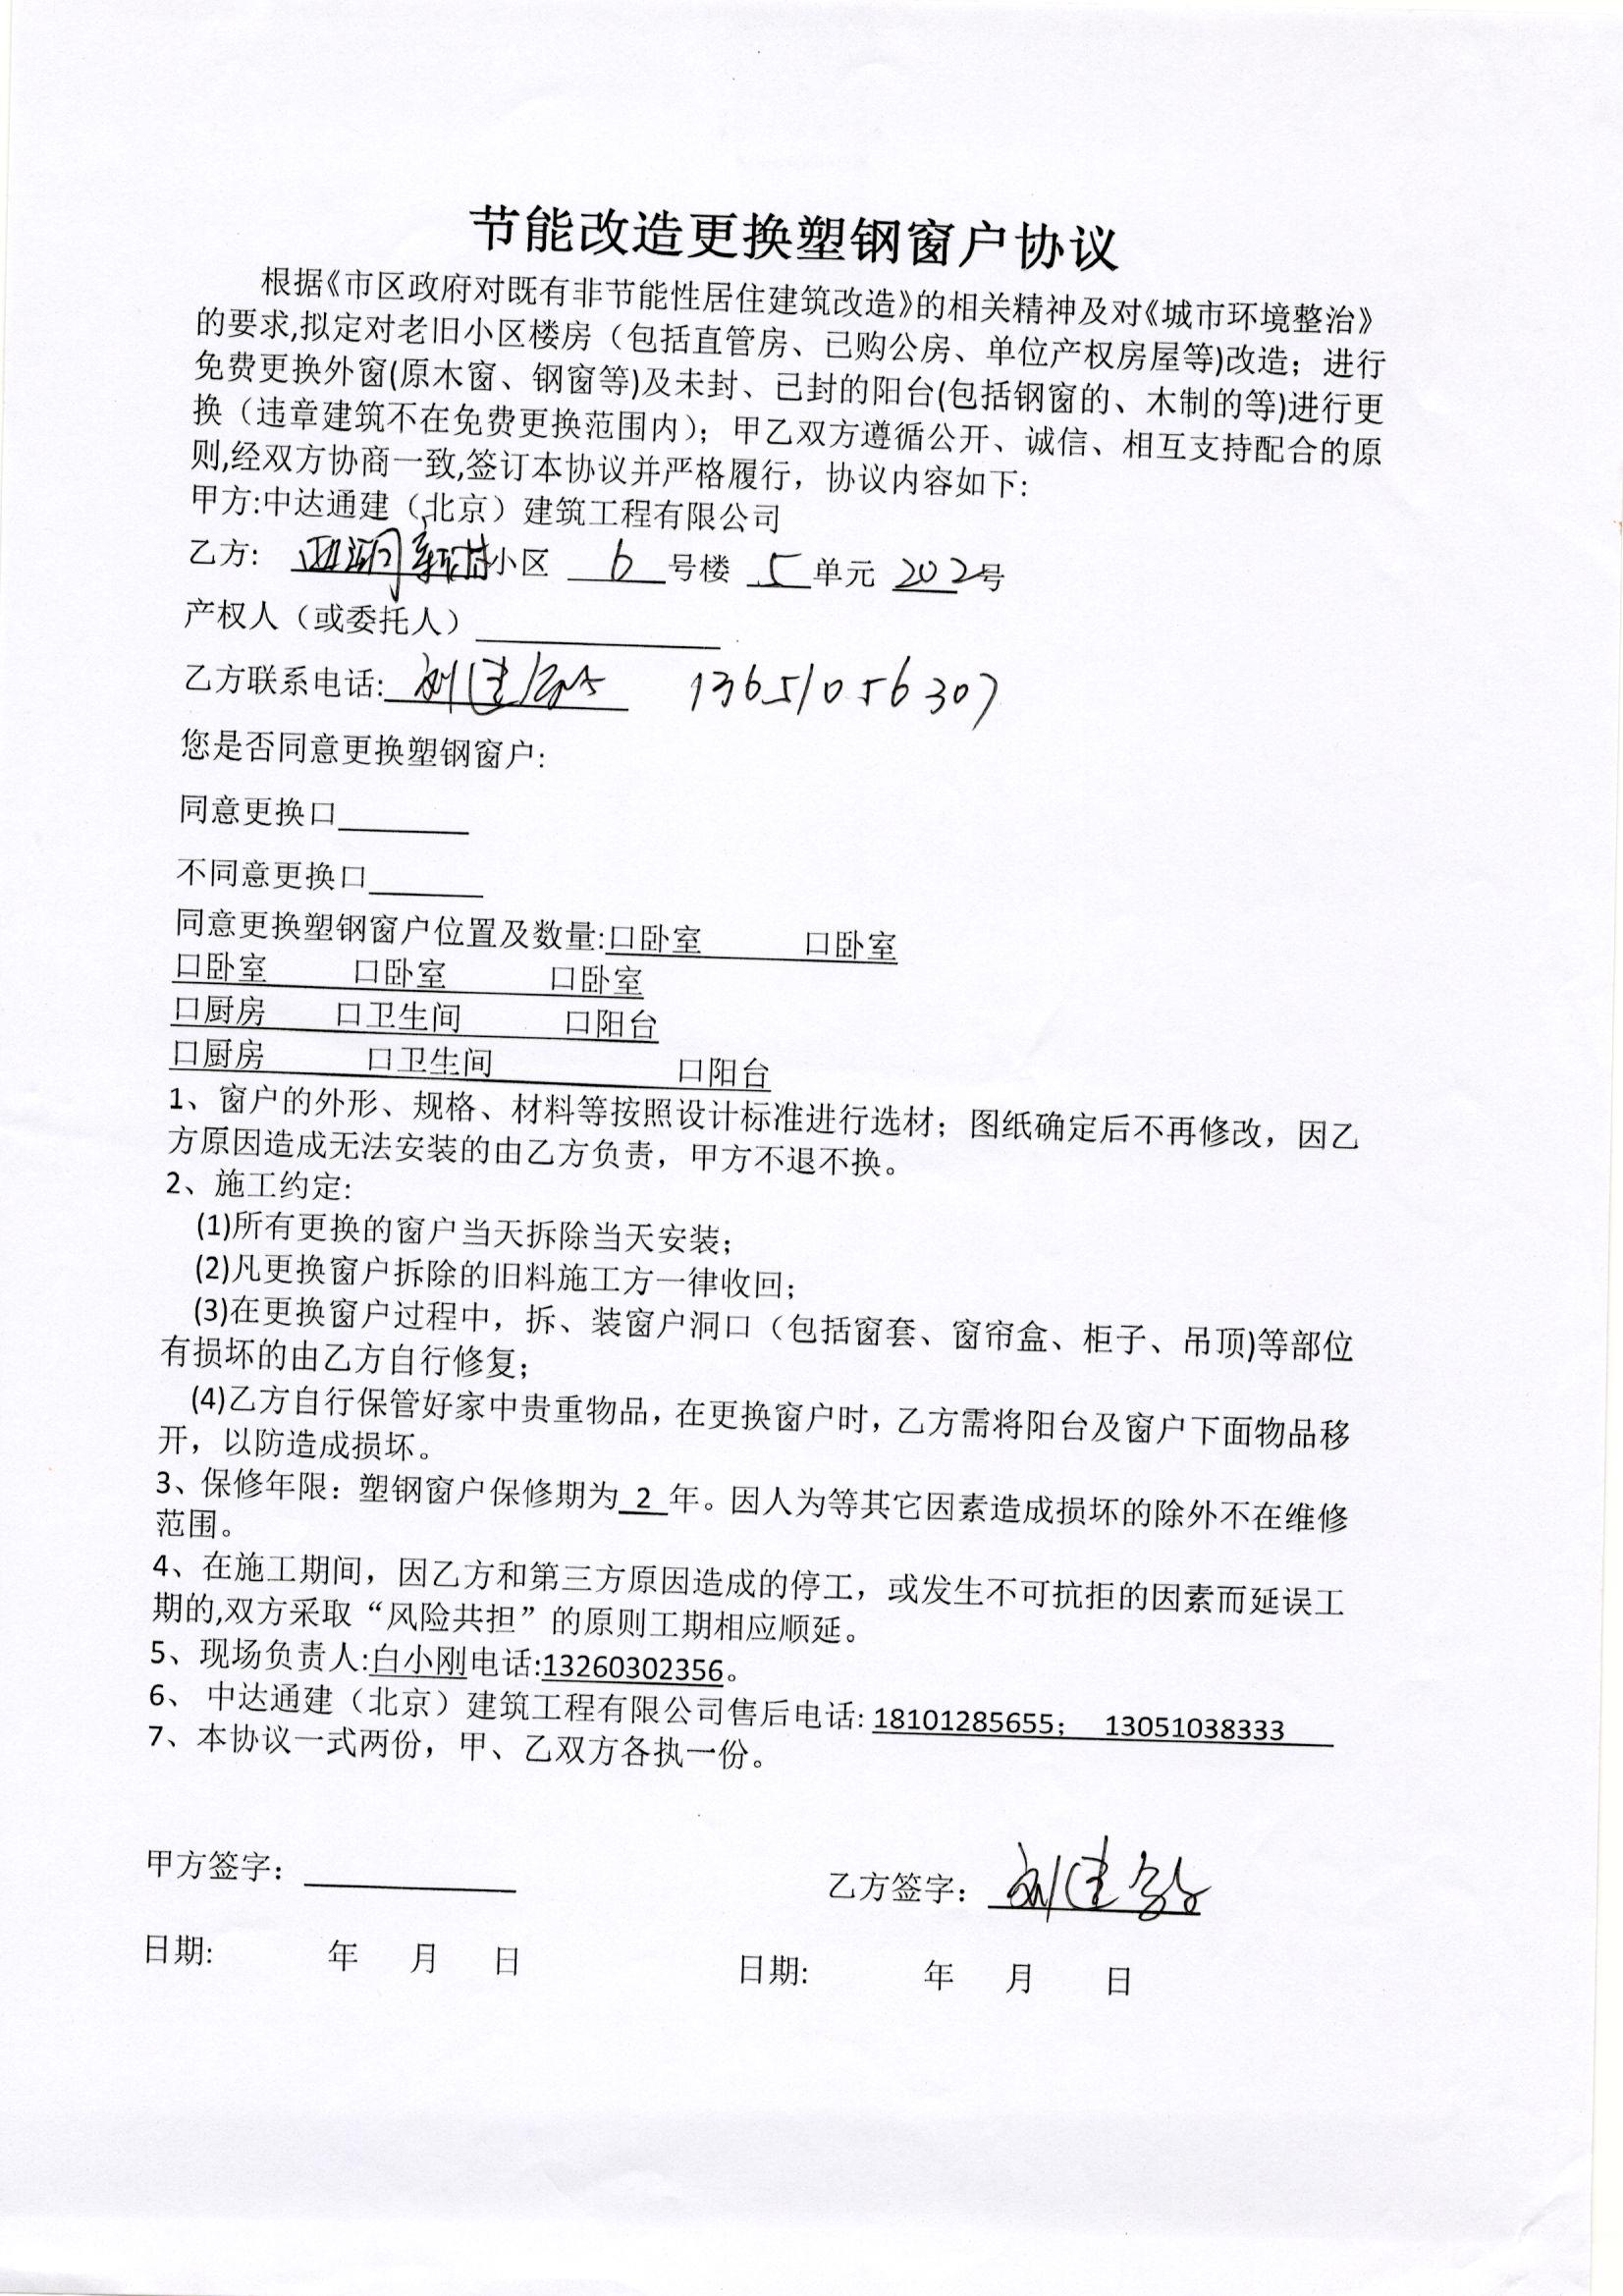 节能改造更换塑钢窗户协议
根据《市区政府对既有非节能性居住建筑改造》的相关精神及对《城市环境整治》
的要求,拟定对老旧小区楼房（包括直管房、已购公房、单位产权房屋等)改造；进行
免费更换外窗(原木窗、钢窗等)及未封、已封的阳台(包括钢窗的、木制的等)进行更
换（违章建筑不在免费更换范围内）；甲乙双方遵循公开、诚信、相互支持配合的原
则,经双方协商一致,签订本协议并严格履行，协议内容如下:
甲方:中达通建（北京）建筑工程有限公司
乙方: 小区 6 号楼 5 单元 202号
产权人（或委托人）
乙方联系电话: 刘建 13651056307
您是否同意更换塑钢窗户:
同意更换口
不同意更换口
同意更换塑钢窗户位置及数量:口卧室 口卧室
口卧室 口卧室 口卧室
口厨房 口卫生间 口阳台
口厨房 口卫生间 口阳台
1、窗户的外形、规格、材料等按照设计标准进行选材；图纸确定后不再修改，因乙
方原因造成无法安装的由乙方负责，甲方不退不换。
2、施工约定:
(1)所有更换的窗户当天拆除当天安装；
(2)凡更换窗户拆除的旧料施工方一律收回；
(3)在更换窗户过程中，拆、装窗户洞口（包括窗套、窗帘盒、柜子、吊顶)等部位
有损坏的由乙方自行修复；
(4)乙方自行保管好家中贵重物品，在更换窗户时，乙方需将阳台及窗户下面物品移
开，以防造成损坏。
3、保修年限：塑钢窗户保修期为 2 年。因人为等其它因素造成损坏的除外不在维修
范围。
4、在施工期间，因乙方和第三方原因造成的停工，或发生不可抗拒的因素而延误工
期的,双方采取“风险共担”的原则工期相应顺延。
5、现场负责人:白小刚电话:13260302356。
6、 中达通建（北京）建筑工程有限公司售后电话: 18101285655； 13051038333
7、本协议一式两份，甲、乙双方各执一份。
甲方签字： 乙方签字： 刘建
日期: 年 月 日 日期: 年 月 日